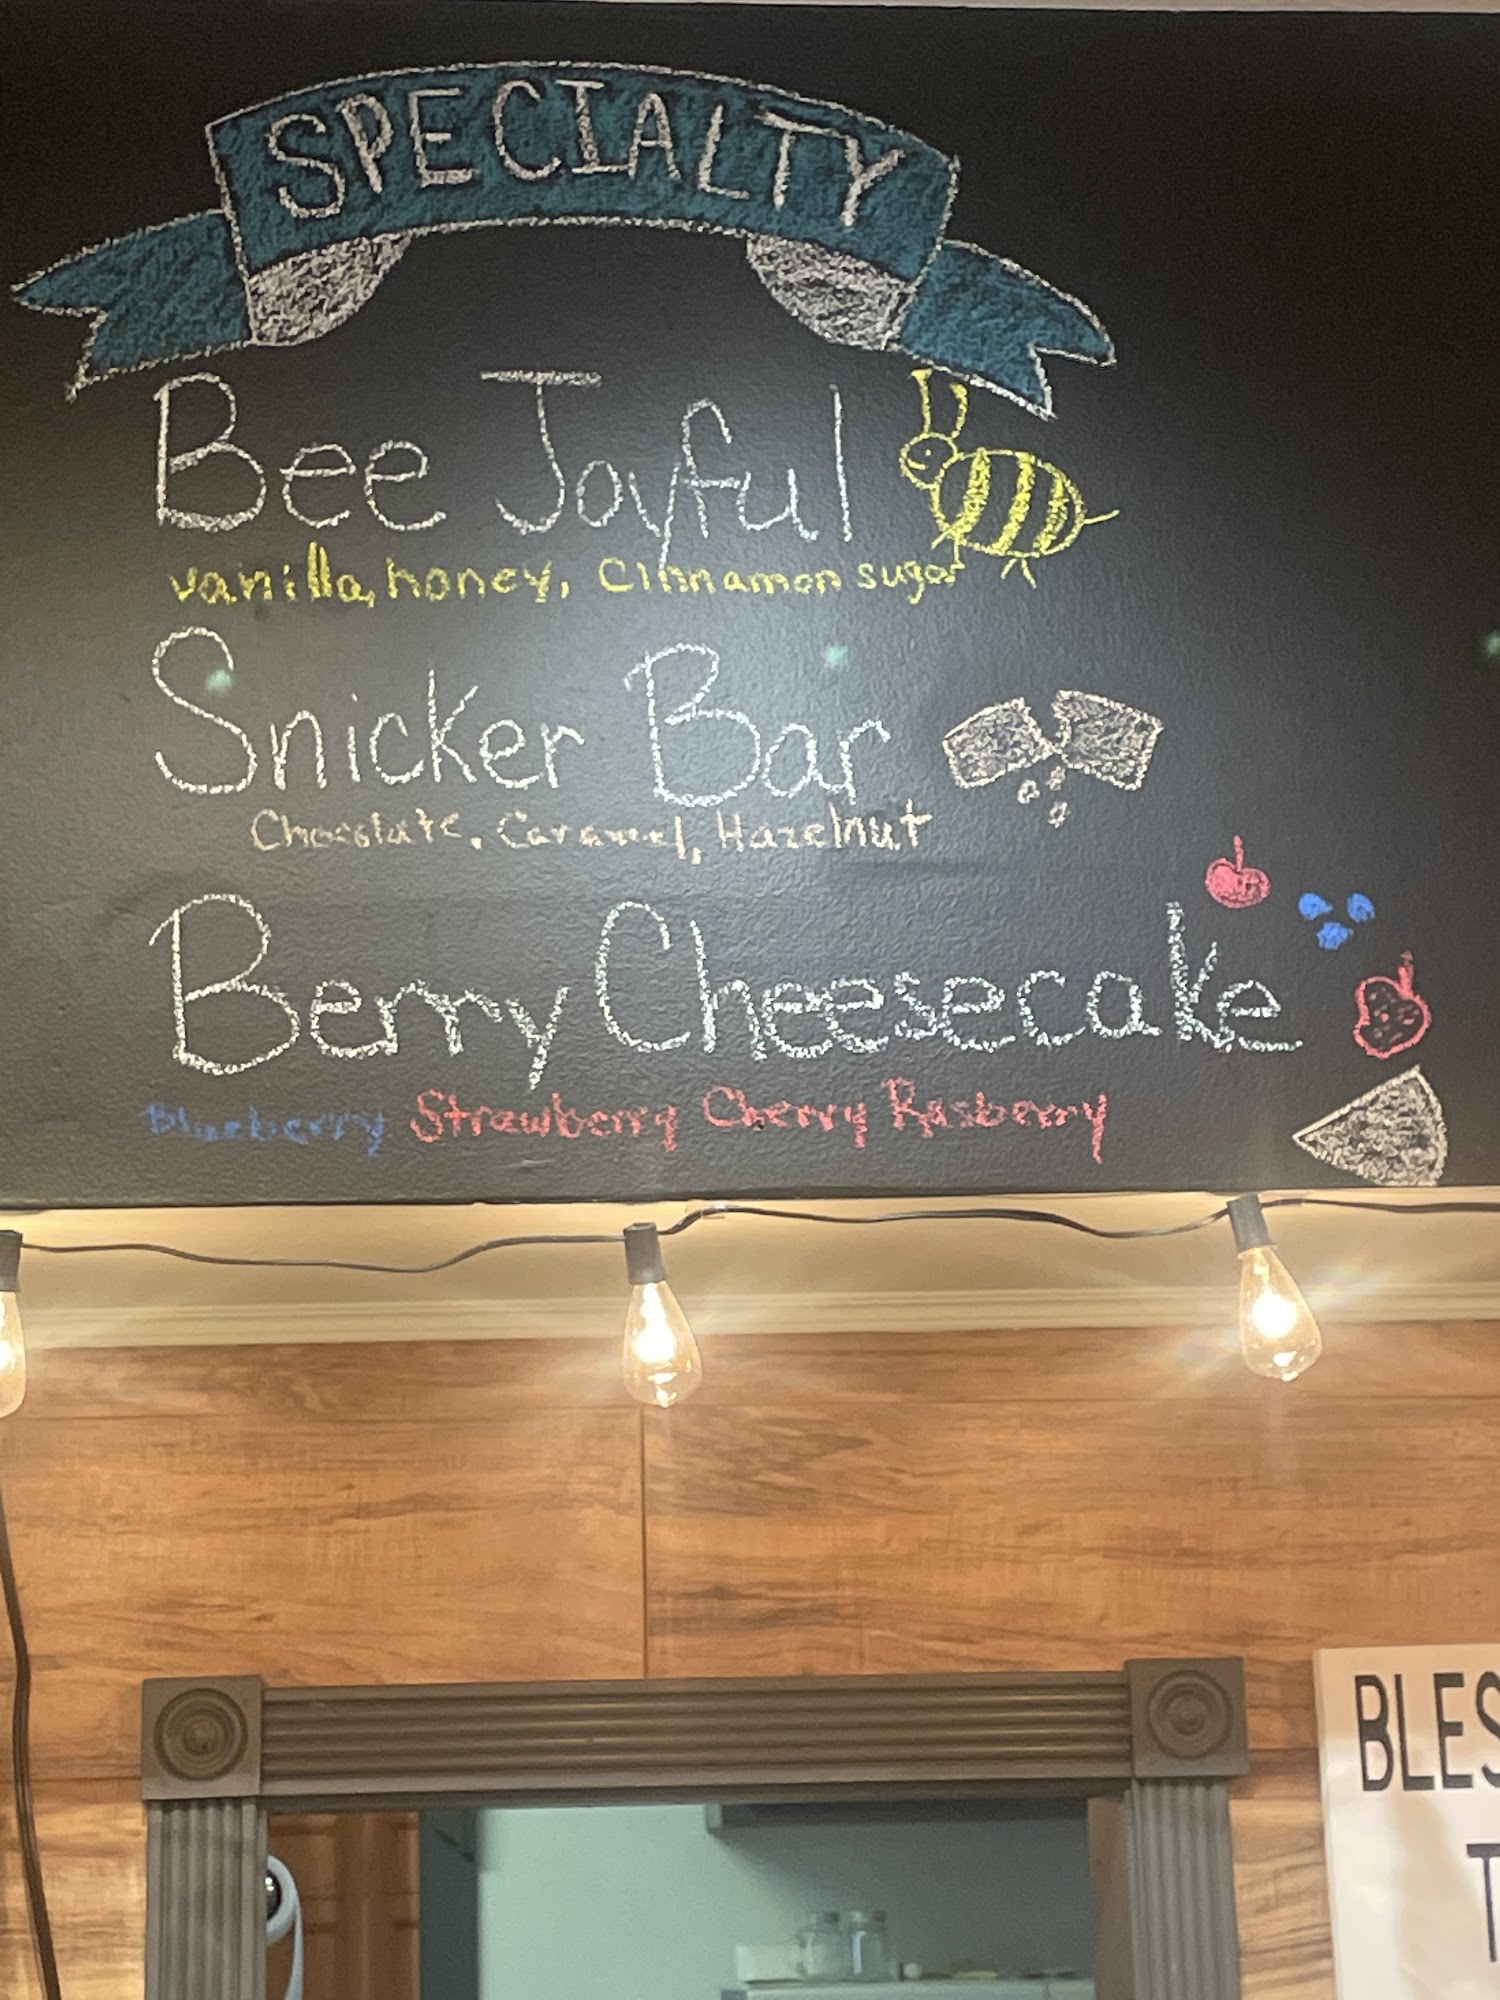 SPECIALTY
Bee Joyful
vanilla, honey, Cinnamon sugar
Snicker Bar
Chocolate, Caramel, Hazelnut
Berry Cheesecake
Blueberry Strawberry Cherry Rasberry
BLES
T